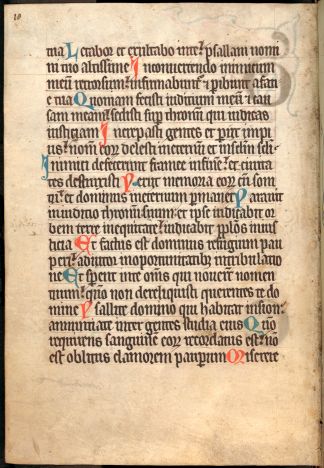 10
mia Letabor et exultabo in te: psallam nomi
ni tuo altissime In convertendo inimicum
meum retrorsum: infirmabunt et peribunt a faci
e tua Quoniam fecisti iudicium meum et cau
sam meam: sedisti sup thronum qui iudicas
iusticiam Increpasti gentes et periit impi
us: nomen eorum delesti in eternum et in seculum seculi
Inimici defecerunt framee in finem: et civita
tes destruxisti Periit memoria eorum cum soni
tu: et dominus in eternum permanet Paravit
in iudicio thronum suum: et ipse iudicabit or
bem terre in equitate: iudicabit pplos in ius
ticia Et factus est dominus refugium pau
peri: adiutor in oportunitatibus in tribulatio
ne Et sperent in te omnes qui noverunt nomen
tuum: quoniam non dereliquisti querentes te do
mine Psallite domino qui habitat in sion:
annunciate inter gentes studia eius Quoniam
requirens sanguinem eorum recordatus est: non
est oblitus clamorem pauperum Miserere